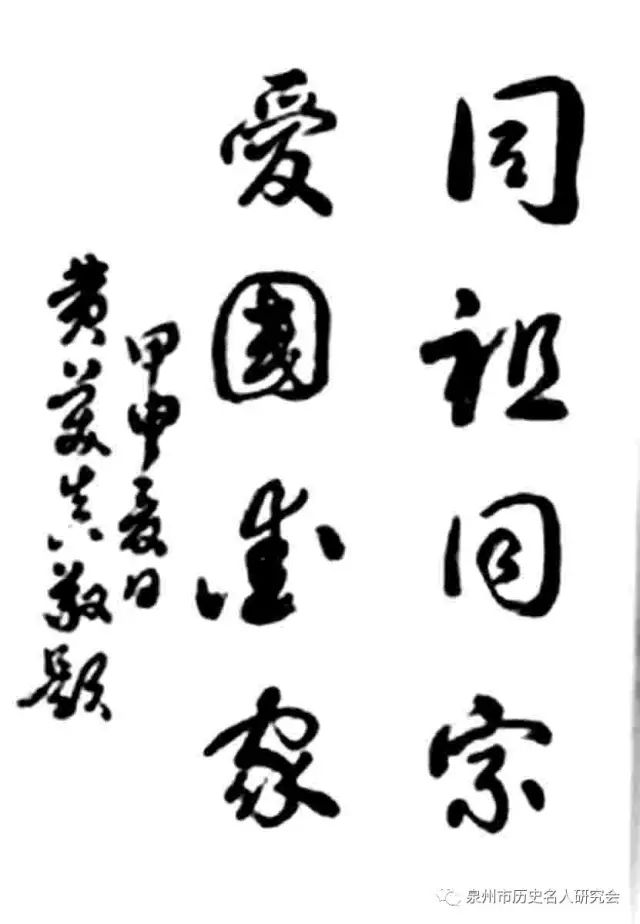 同祖同宗
愛國愛家
甲申夏日
黄美真敬題
泉州市历史名人研究会